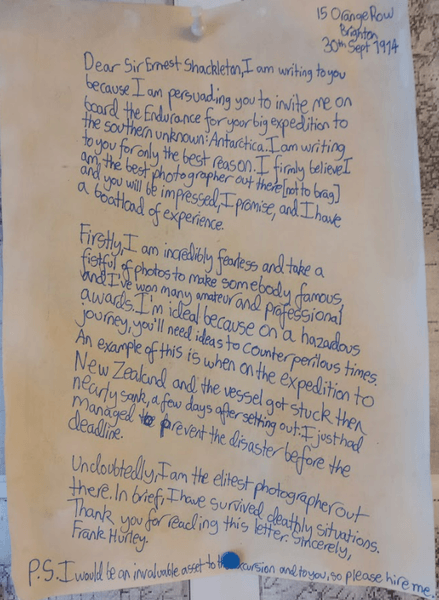 15 Orange Row
Brighton
30th Sept 1914
Dear Sir Ernest Shackleton, I am writing to you
because I am persuading you to invite me on
board the Endurance for your big expedition to
the southern unknown: Antarctica. I am writing
to you for only the best reason. I firmly believe I
am, the best photographer out there [not to brag]
and you will be impressed, I promise, and I have
a boatload of experience.
Firstly, I am incredibly fearless and take a
fistful of photos to make somebody famous,
and I've won many amateur and professional
awards. I'm ideal because on a hazardous
journey, you'll need ideas to counter perilous times.
An example of this is when on the expedition to
New Zealand and the vessel got stuck then
nearly sank, a few days after setting out. I just had
managed to prevent the disaster before the
deadline.
Undoubtedly, I am the elitest photographer out
there. In brief, I have survived deathly situations.
Thank you for reading this letter. Sincerely,
Frank Hurley.
P.S. I would be an invaluable asset to and to you, so please hire me.